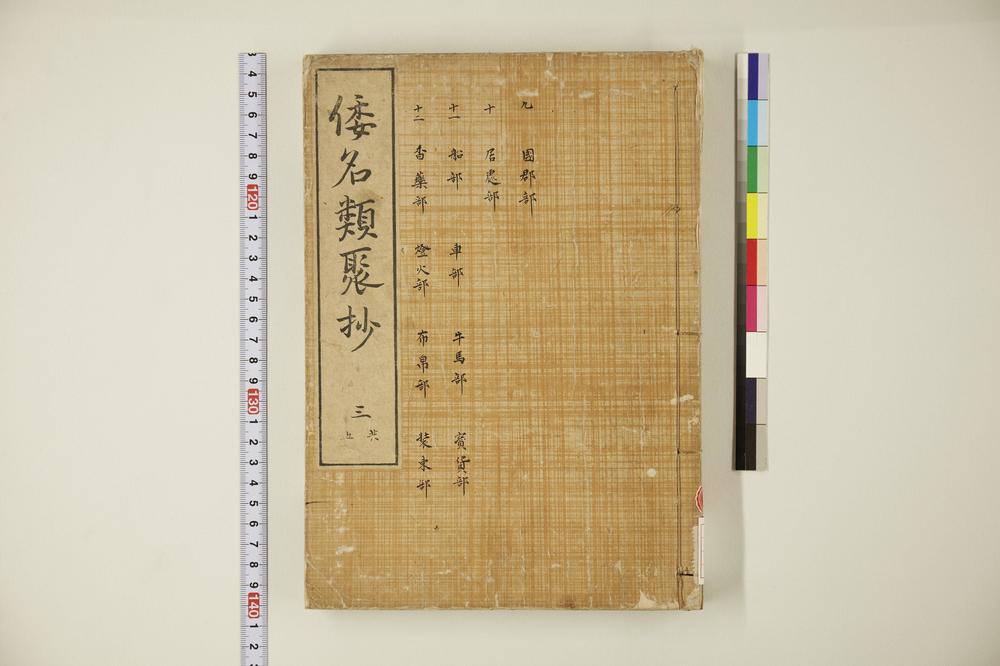 九 國郡部
十 居處部
十一 船部 車部 牛馬部 寶貨部
十二 香藥部 燈火部 布帛部 裝束部
倭名類聚抄 三
共五
3 4 5 6 7 8 9 120 1 2 3 4 5 6 7 8 9 130 1 2 3 4 5 6 7 8 9 140 1 2